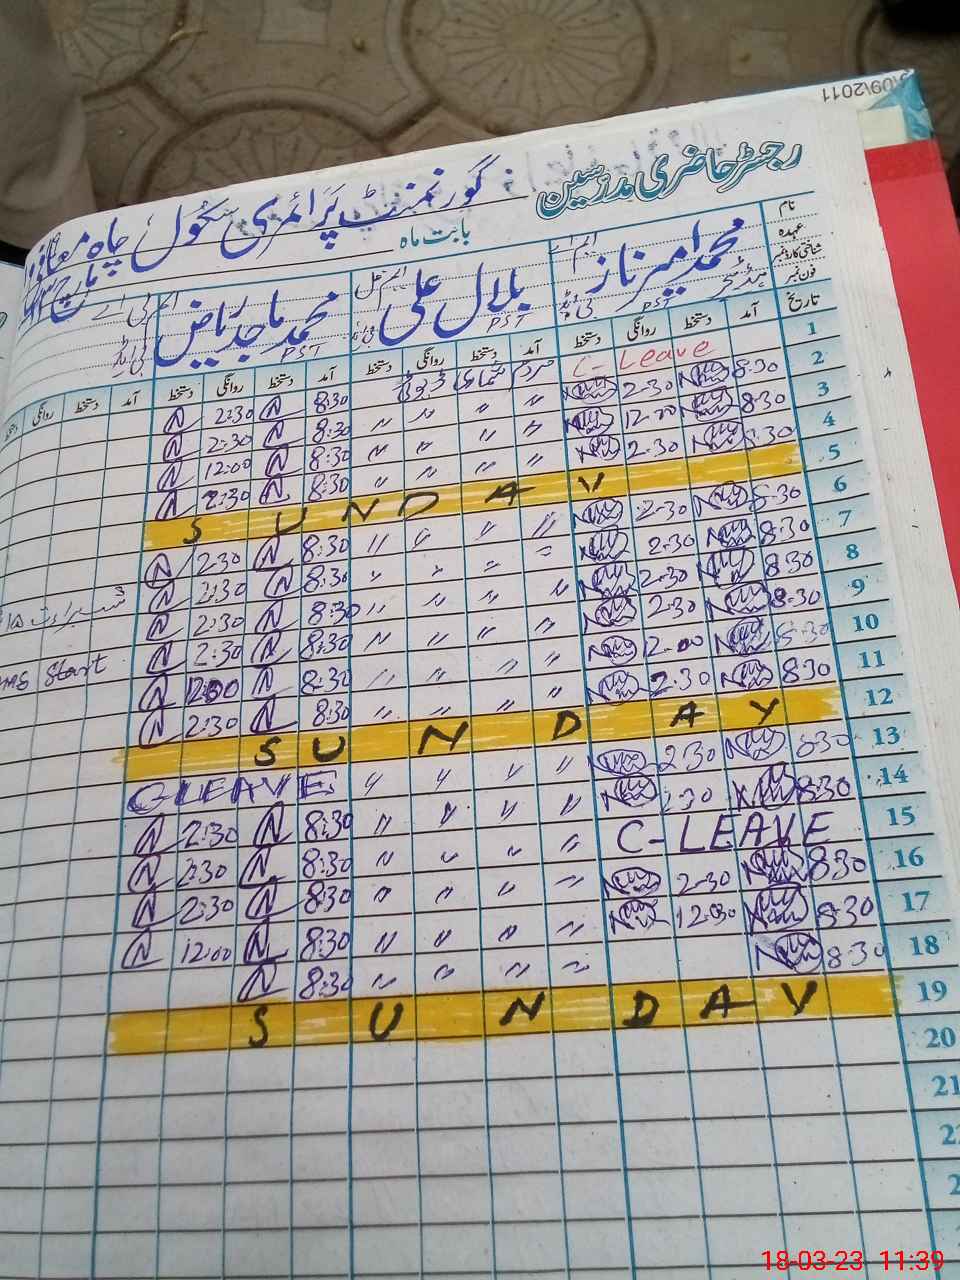 رجسٹر حاضری مدرسین
گورنمنٹ پرائمری سکول چاہ
بابت ماہ مارچ
نام
عہدہ
شناختی کارڈ نمبر
فون نمبر
تاریخ
محمد امیر ناز PST
بلال علی PST
محمد ماجد ریاض PST
آمد دستخط روانگی دستخط آمد دستخط روانگی دستخط آمد دستخط روانگی دستخط آمد دستخط روانگی دستخط
1 C-Leave مردم شماری ڈیوٹی 8:30 2:30
2 8:30 2:30 " " " " 8:30 2:30
3 8:30 12:00 " " " " 8:30 12:00
4 8:30 2:30 " " " " 8:30 2:30
5 SUNDAY
6 8:30 2:30 " " " " 8:30 2:30
7 8:30 2:30 " " " " 8:30 2:30
8 8:30 2:30 " " " " 8:30 2:30 شب برات
9 8:30 2:30 " " " " 8:30 2:30
10 8:30 12:00 " " " " 8:30 12:00 Start
11 8:30 2:30 " " " " 8:30 2:30
12 SUNDAY
13 8:30 2:30 " " " " C-LEAVE
14 8:30 2:30 " " " " 8:30 2:30
15 C-LEAVE " " " " 8:30 2:30
16 8:30 2:30 " " " " 8:30 2:30
17 8:30 12:00 " " " " 8:30 12:00
18 8:30 " " " " 8:30
19 SUNDAY
20
21
18-03-23 11:39